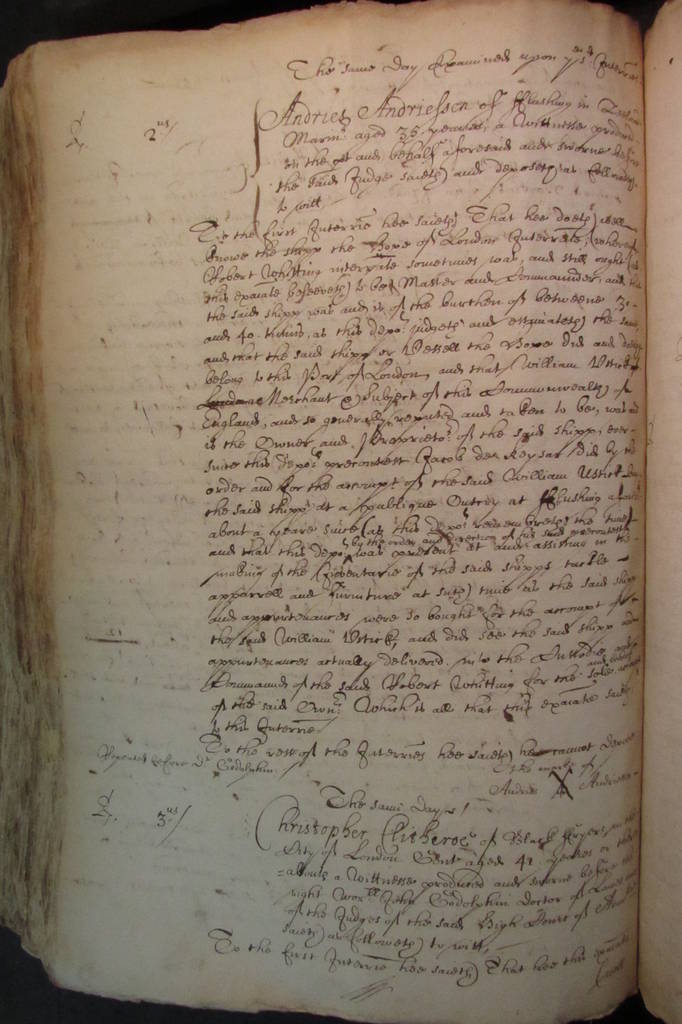 The same day Examined upon ye sd Interries
2us/
Andries Andriessen of Flushing in
Marinr aged 35 yeares, a Wittnesse produced
on the pt and behalfe aforesaid and sworne before
the said Judge saieth and deposeth as followeth
to witt
To the first Interrie hee saieth That hee doeth well
knowe the shipp the Hope of London Interrate, whereof
Robert Whitting interrate sometimes was, and still ought (as
this exaiate beleeveth) to bee Master and Commaunder, and
the said shipp was and is of the burthen of betweene 30
and 40 tonns, as this depot judgeth and estimateth the same
and that the said shipp or Vessell the Hope did and doeth
belong to this Port of London, and that William Usticke
Merchant & Subject of this Commonwealth of
England, and so generally reputed and taken to be, was and
is the Owner and Proprietor of the said shipp, ever
since this depots precontest Jacob de Keysar did by the
order and for the accompt of the said William Usticke buy
the said shipp at a publique Outcry at Flushing
about a yeare since (as this depot remembreth the time)
by the order and direction of his said precontest
and that this depot was present at and assisting in the
making of the Inventarie of the said shipps tackle
apparrell and furniture at such time as the said shipp
and appurtenances were so bought for the accompt of
the said William Usticke, and did see the said shipp and
appurtenances actually delivered into the Custodie and
Command of the said Robert Whitting for the sole
and behoofe
of the said Ownr. Which is all that this exaiate saieth
to this Interrie.
To the rest of the Interries hee saieth he cannot depose
Repeated before Dr Godolphin.
The marke of
Andries X Andriessen
The same day/
3us/
Christopher Clitheroe of Black Fryers, in the
City of London Gent aged 41 yeares or there
=abouts a Wittnesse produced and sworne before the
right Worll John Godolphin doctor of Lawes
of the Judges of the said High Court of
saieth as followeth to witt,
To the first Interrie hee saieth That hee this exaiate